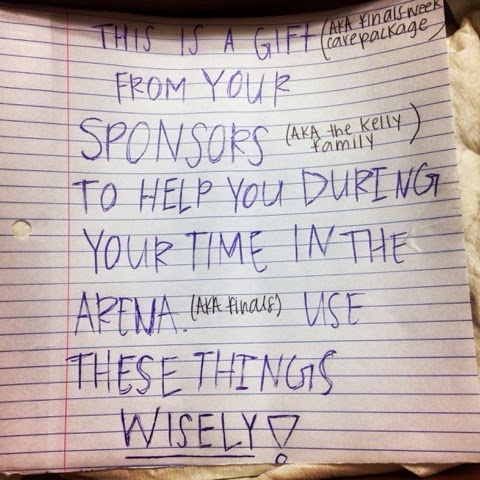 THIS IS A GIFT (AKA finals week
carepackage)
FROM YOUR
SPONSORS (AKA the Kelly
family)
TO HELP YOU DURING
YOUR TIME IN THE
ARENA. (AKA finals) USE
THESE THINGS
WISELY!